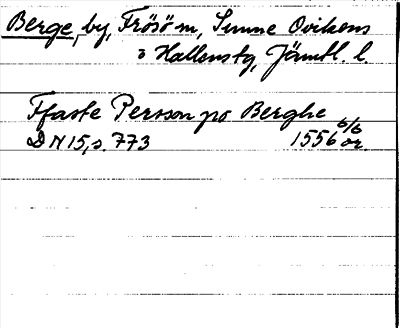 Berge, by, Frösö m, Sunne Ovikens
o Hallens tg, Jämtl. l.
Ffaste Persson po Berghe
DN 15, s. 773 1556 6/6 or.